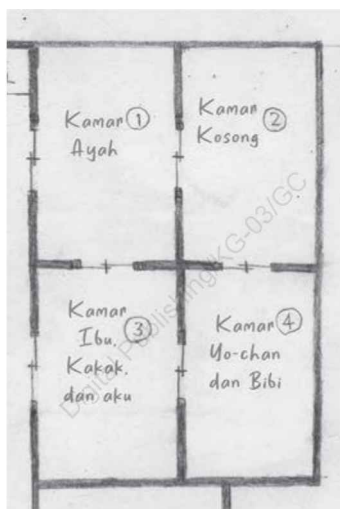 Kamar ①
Ayah
Kamar ②
Kosong
Kamar
Ibu, ③
Kakak,
dan aku
Kamar ④
Yo-chan
dan Bibi
Digital Publishing/KG-03/GC